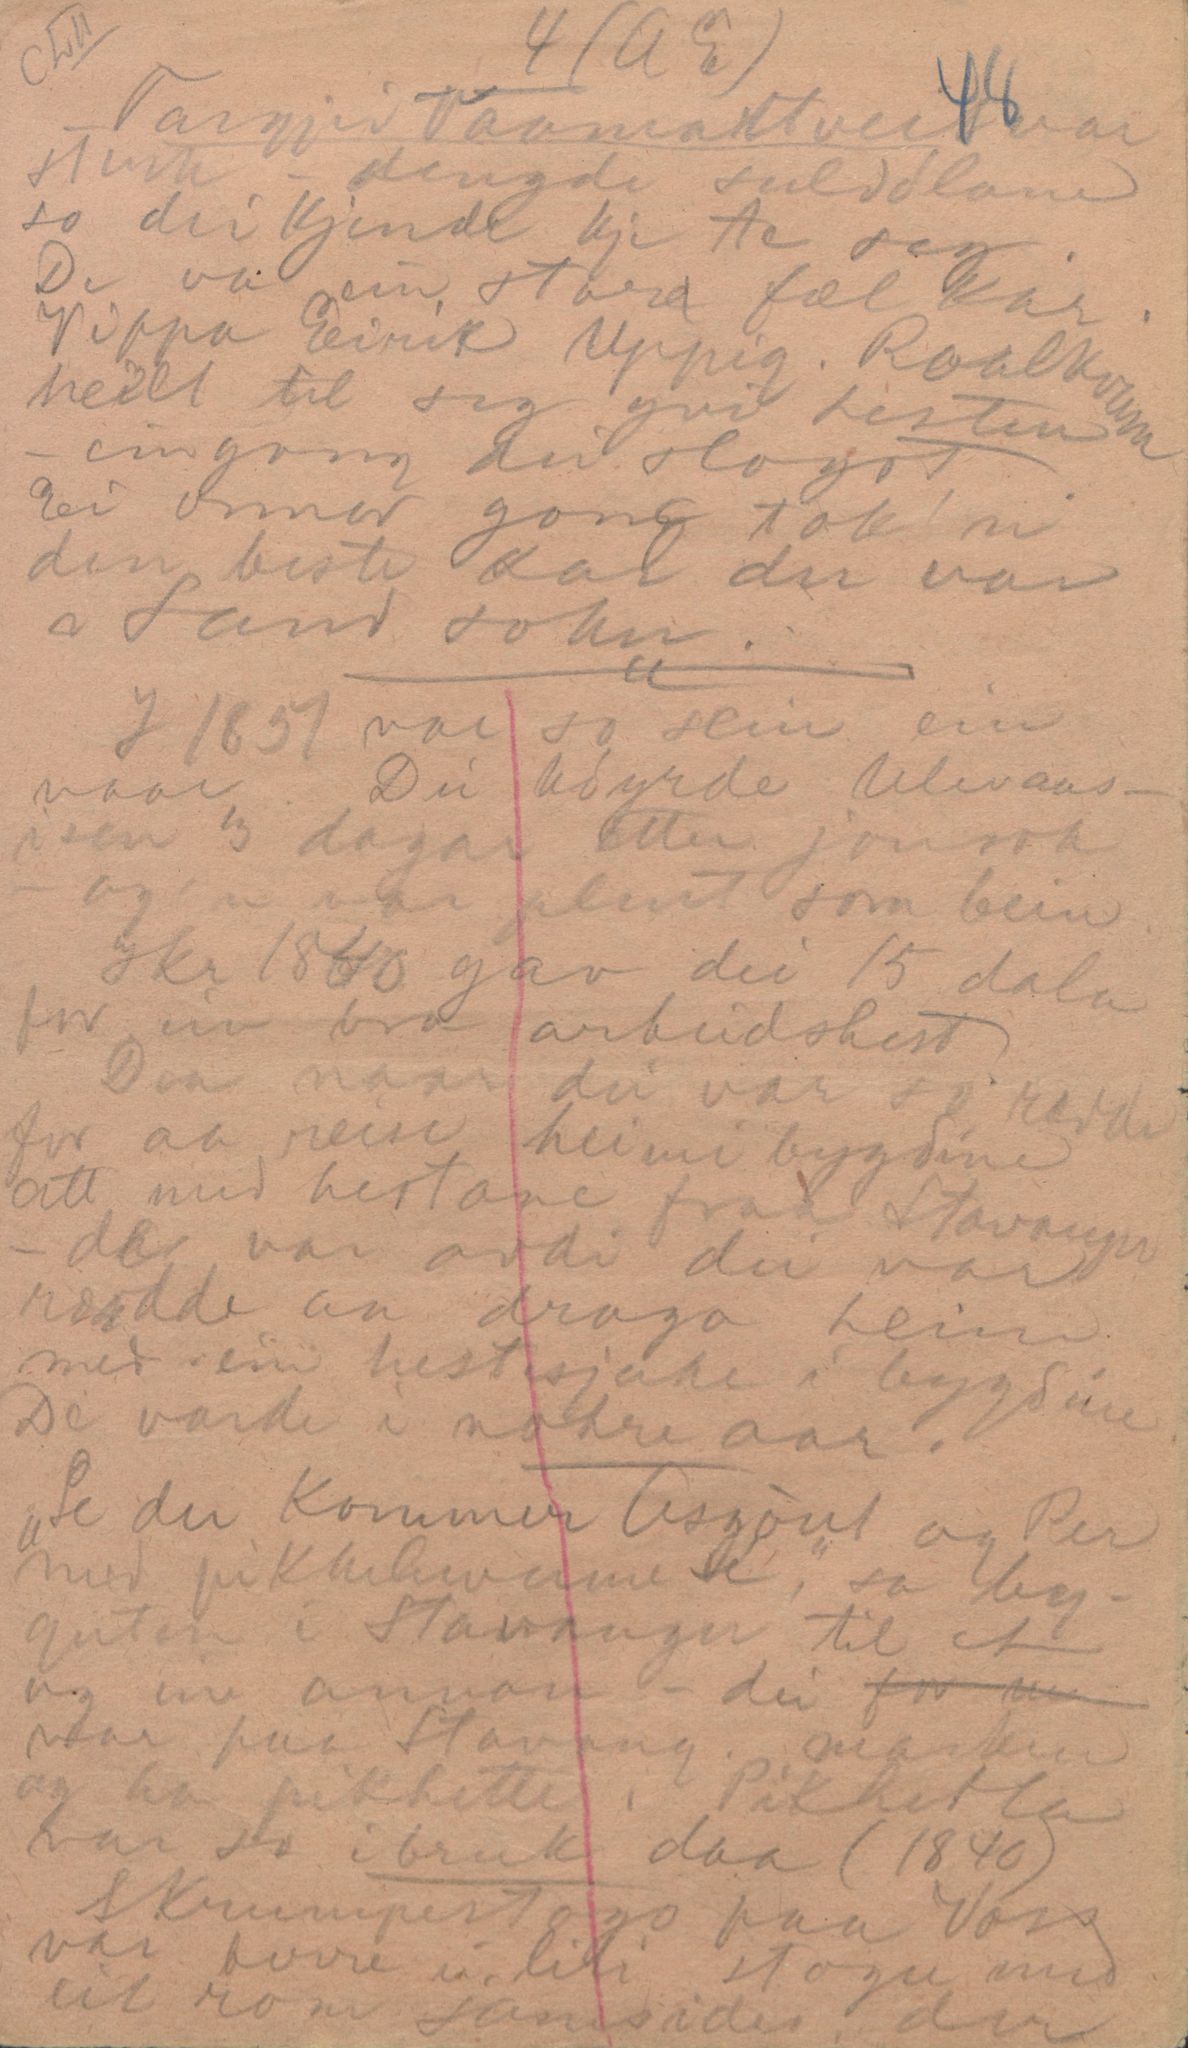 4 (A E)
48
Targjei Vaamartveit var
sterk – dengde suldölane
so dei kjende kje te seg.
De va ein store fæl kar.
Vippa Eirik Uppig. Roalkvam
heilt til seg yvi hesten
– eingong dei slogost
Ei onnor gong tok 'n
den beste kar der var
a Sand sokn.
I 1851 var so sein ein
vaar. Dei köyrde Ulevaas-
isen 3 dagar etter jonsok
– og 'n var glent som bein
Ikr 1840 gav dei 15 dala
for ein bra arbeidshest
Daa naar dei var so rædde
for aa reise heimi bygdine
att med hestane fraa Stavanger
– de var avdi dei var
rædde aa draga heim
med ein hestesjuke i bygdine
De varde i nokre aar.
"Se der kommer Asgöut og Per
med pikkeluerne", sa by-
guten i Stavanger til ein
og ein annan – dei for
var paa Stavang. marken
og ha pikhette. Pikhetta
var so i bruk daa (1840)
Skrumperstogo paa Voss
var borre ei liti stogu med
eit rom samsides der